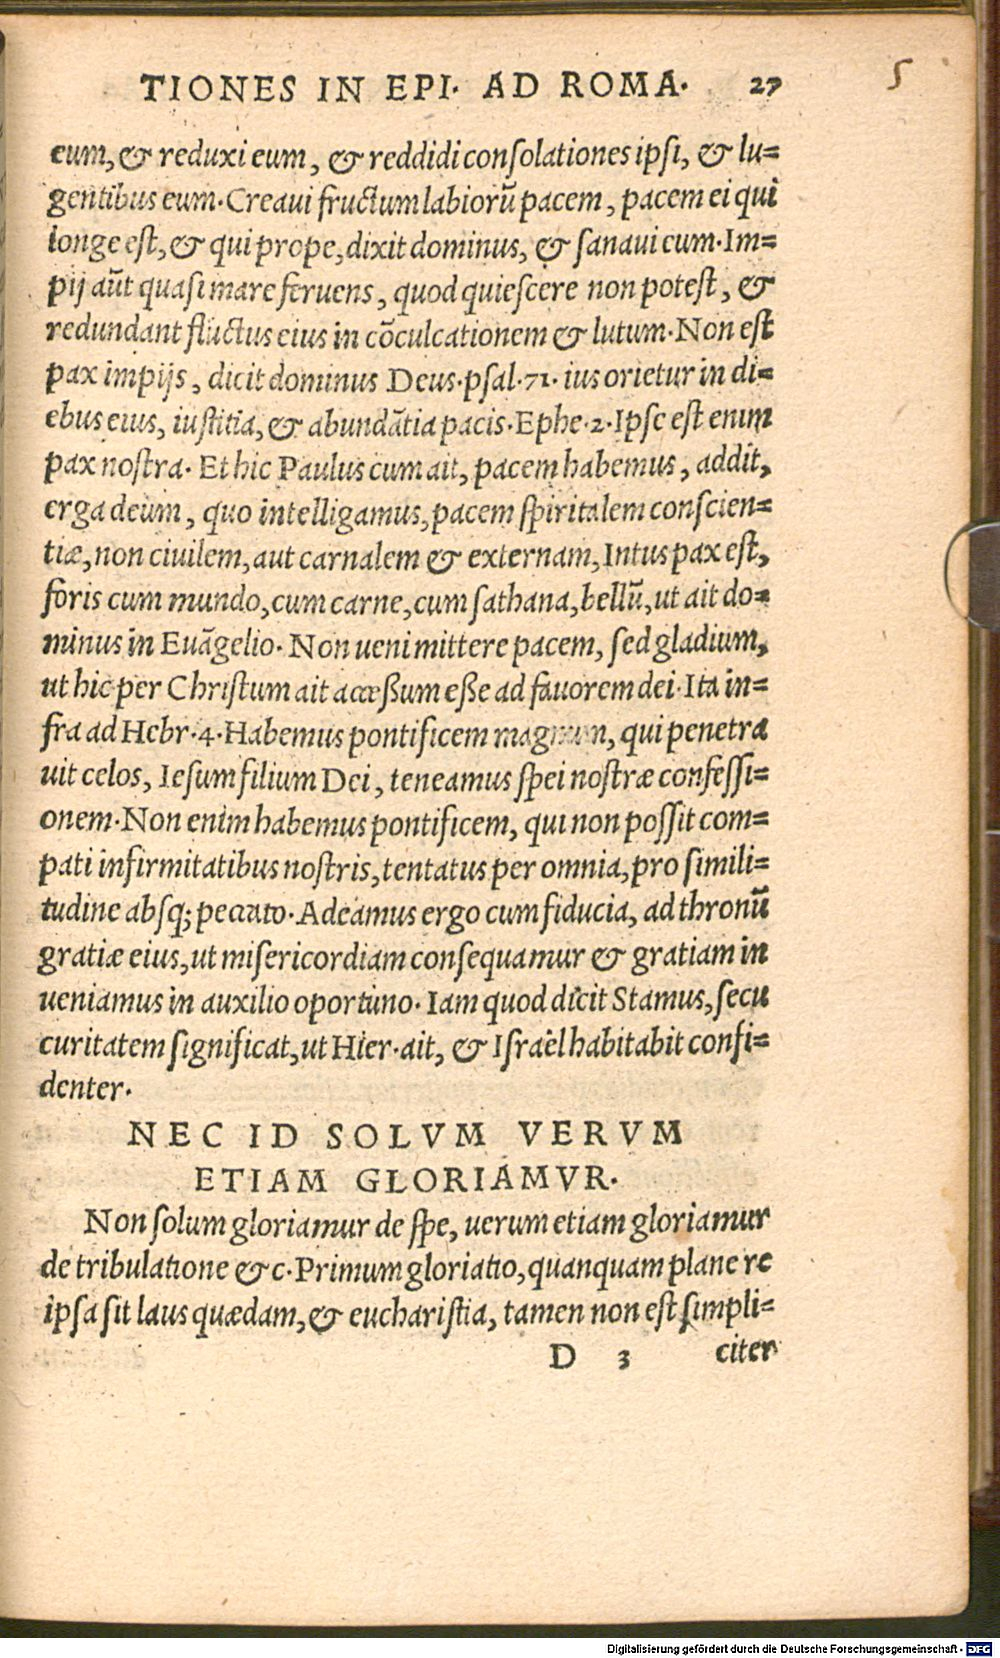 TIONES IN EPI. AD ROMA. 27
5
eum, & reduxi eum, & reddidi consolationes ipsi, & lu=
gentibus eum. Creaui fructum labiorũ pacem, pacem ei qui
longe est, & qui prope, dixit dominus, & sanaui eum. Im=
pij aũt quasi mare feruens, quod quiescere non potest, &
redundant fluctus eius in cõculcationem & lutum. Non est
pax impijs, dicit dominus Deus. psal. 71. ius orietur in di=
ebus eius, iustitia, & abundãtia pacis. Ephe. 2. Ipse est enim
pax nostra. Et hic Paulus cum ait, pacem habemus, addit,
erga deum, quo intelligamus, pacem spiritalem conscien=
tiæ, non ciuilem, aut carnalem & externam, Intus pax est,
foris cum mundo, cum carne, cum sathana, bellũ, ut ait do=
minus in Euãgelio. Non ueni mittere pacem, sed gladium,
ut hic per Christum ait accessum esse ad fauorem dei. Ita in=
fra ad Hebr. 4. Habemus pontificem magnum, qui penetra
uit celos, Iesum filium Dei, teneamus spei nostræ confessi=
onem. Non enim habemus pontificem, qui non possit com=
pati infirmitatibus nostris, tentatus per omnia, pro simili=
tudine absq; peccato. Adeamus ergo cum fiducia, ad thronũ
gratiæ eius, ut misericordiam consequamur & gratiam in
ueniamus in auxilio oportuno. Iam quod dicit Stamus, secu
curitatem significat, ut Hier. ait, & Israel habitabit confi=
denter.
NEC ID SOLVM VERVM
ETIAM GLORIAMVR.
Non solum gloriamur de spe, uerum etiam gloriamur
de tribulatione & c. Primum gloriatio, quanquam plane re
ipsa sit laus quædam, & eucharistia, tamen non est simpli=
D 3 citer
Digitalisierung gefördert durch die Deutsche Forschungsgemeinschaft - DFG